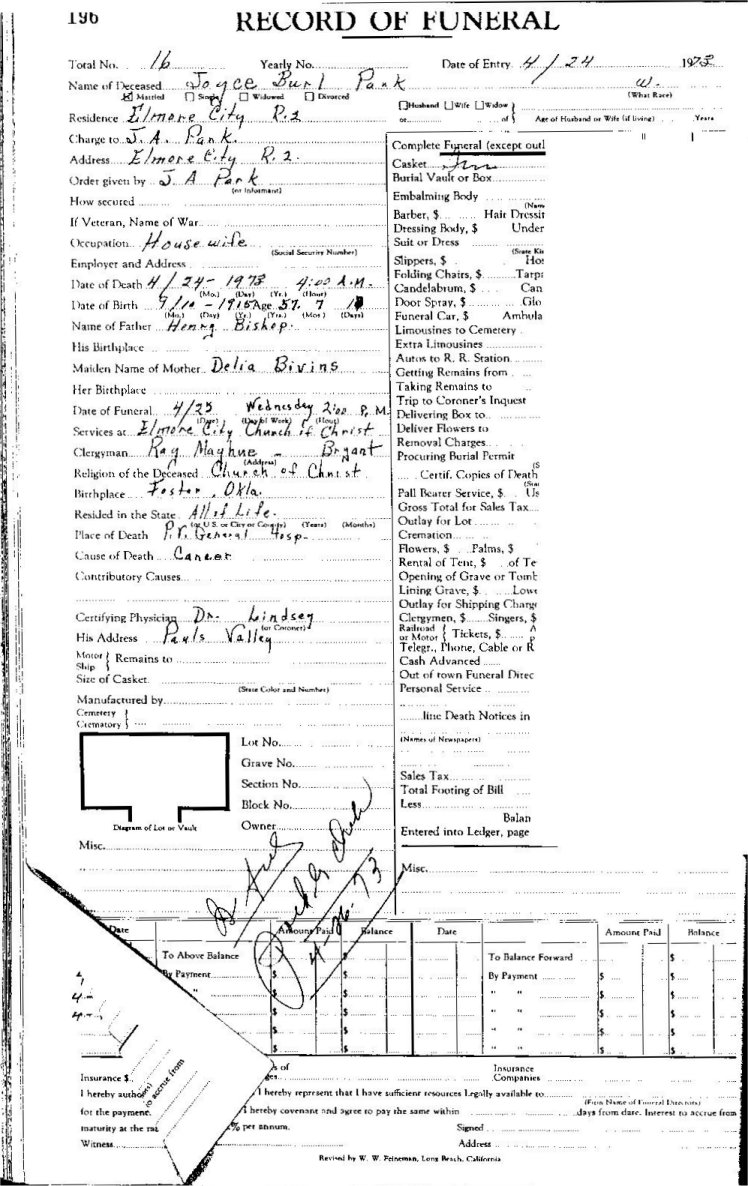 196
RECORD OF FUNERAL
Total No. 16 Yearly No. Date of Entry 4/24 1973
Name of Deceased Joyce Burl Park W.
Married Single Widowed Divorced (What Race)
Husband Wife Widow
or of Age of Husband or Wife (if living) Years
Residence Elmore City R.2
Charge to J. A. Park.
Address Elmore City R. 2.
Order given by J A Park
(or Informant)
How secured
If Veteran, Name of War
Occupation House wife
(Social Security Number)
Employer and Address
Date of Death 4/24-1973 4:00 A.M.
(Mo.) (Day) (Yr.) (Hour)
Date of Birth 9/10-1915 Age 57. 7
(Mo.) (Day) (Yr.) (Yrs.) (Mos.) (Days)
Name of Father Henry Bishop.
His Birthplace
Maiden Name of Mother Delia Bivins
Her Birthplace
Date of Funeral 4/25 Wednesday 2:00 P. M.
(Date) (Day of Week) (Hour)
Services at Elmore City Church of Christ
Clergyman Ray Mayhue - Bryant
(Address)
Religion of the Deceased Church of Christ
Birthplace Foster, Okla.
Resided in the State All of Life.
(or U S. or City or County) (Years) (Months)
Place of Death P.V. General Hosp.
Cause of Death Cancer
Contributory Causes
Certifying Physician Dr. Lindsey
(or Coroner)
His Address Pauls Valley
Motor
Ship Remains to
Size of Casket
(State Color and Number)
Manufactured by
Cemetery
Crematory
Lot No.
Grave No.
Section No.
Block No.
Owner
Diagram of Lot or Vault
Misc.
Complete Funeral (except outl
Casket
Burial Vault or Box
Embalming Body
(Nam
Barber, $ Hair Dressin
Dressing Body, $ Under
Suit or Dress
(State Kin
Slippers, $ Hos
Folding Chairs, $ Tarp
Candelabrum, $ Can
Door Spray, $ Glo
Funeral Car, $ Ambula
Limousines to Cemetery
Extra Limousines
Autos to R. R. Station
Getting Remains from
Taking Remains to
Trip to Coroner's Inquest
Delivering Box to
Deliver Flowers to
Removal Charges
Procuring Burial Permit
(S
Certif. Copies of Death
(Stat
Pall Bearer Service, $ Us
Gross Total for Sales Tax
Outlay for Lot
Cremation
Flowers, $ Palms, $
Rental of Tent, $ of Te
Opening of Grave or Tomb
Lining Grave, $ Lowe
Outlay for Shipping Charge
Clergymen, $ Singers, $
Railroad A
or Motor Tickets, $ p
Telegr., Phone, Cable or R
Cash Advanced
Out of town Funeral Direc
Personal Service
line Death Notices in
(Names of Newspapers)
Sales Tax
Total Footing of Bill
Less
Balan
Entered into Ledger, page
Misc.
4-26-73
Date Amount Paid Balance Date Amount Paid Balance
To Above Balance To Balance Forward $
By Payment $ By Payment $ $
" $ $ " " $ $
$ $ " " $ $
$ $ " " $ $
Insurance $ s of Insurance
ges Companies
I hereby author I hereby represent that I have sufficient resources Legally available to
(Firm Name of Funeral Directors)
for the payment I hereby covenant and agree to pay the same within days from date. Interest to accrue from
maturity at the rat % per annum. Signed
Witness Address
to accrue from
Revised by W. W. Feineman, Long Beach, California